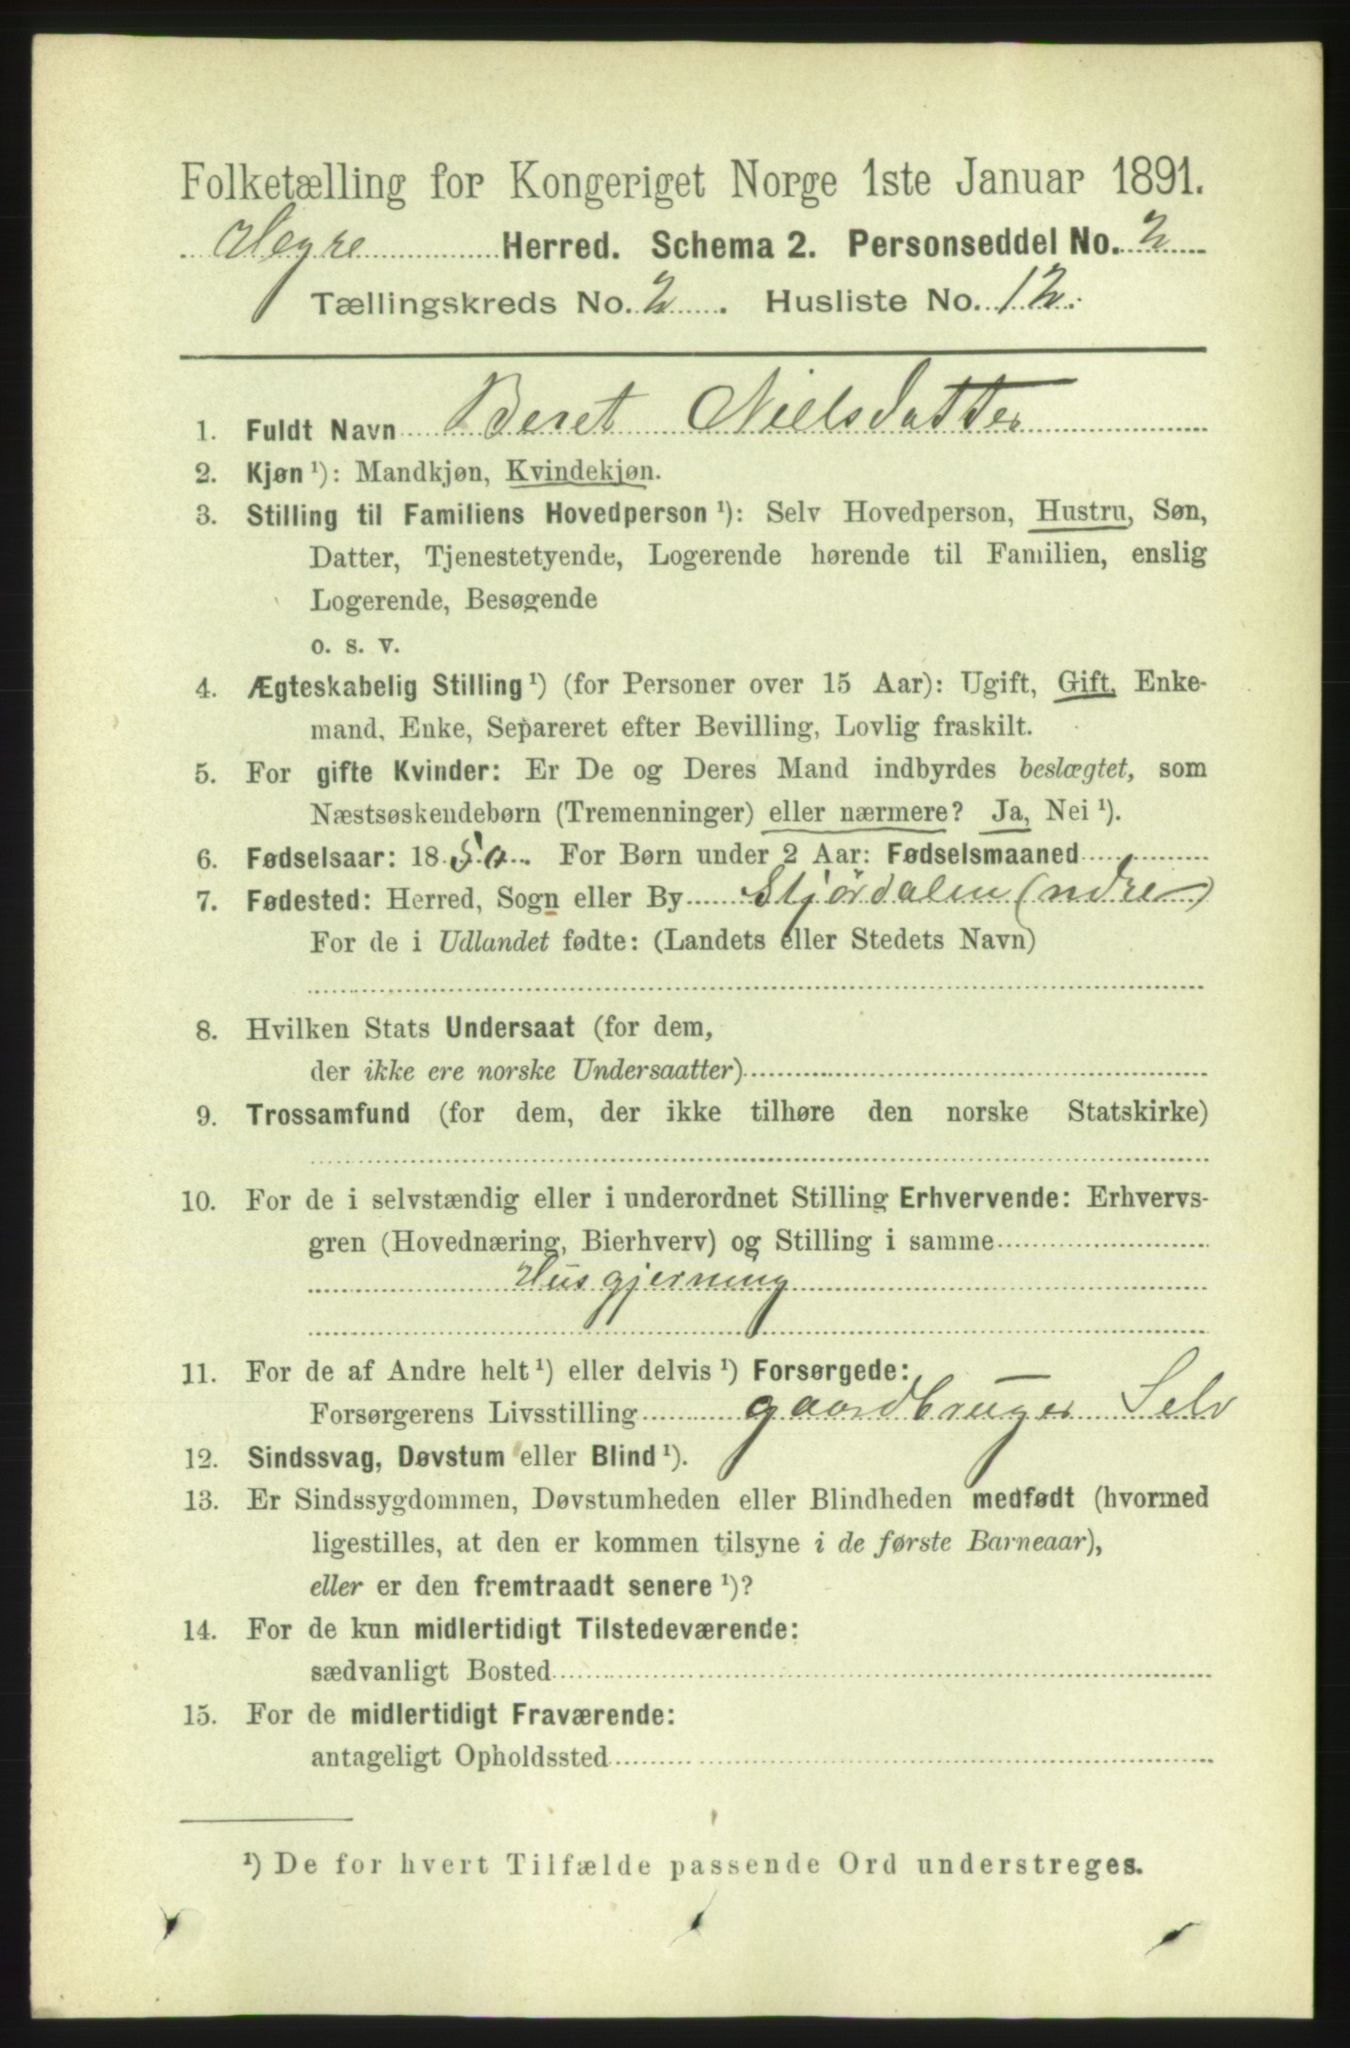 Folketælling for Kongeriget Norge 1ste Januar 1891.
Hegre Herred. Schema 2. Personseddel No. 2
Tællingskreds No. 2. Husliste No. 12.
1. Fuldt Navn Beret Nielsdatter
2. Kjøn ¹): Mandkjøn, Kvindekjøn.
3. Stilling til Familiens Hovedperson ¹): Selv Hovedperson, Hustru, Søn,
Datter, Tjenestetyende, Logerende hørende til Familien, enslig
Logerende, Besøgende
o. s. v.
4. Ægteskabelig Stilling ¹) (for Personer over 15 Aar): Ugift, Gift, Enke-
mand, Enke, Separeret efter Bevilling, Lovlig fraskilt.
5. For gifte Kvinder: Er De og Deres Mand indbyrdes beslægtet, som
Næstsøskendebørn (Tremenninger) eller nærmere? Ja, Nei ¹).
6. Fødselsaar: 1850. For Børn under 2 Aar: Fødselsmaaned
7. Fødested: Herred, Sogn eller By Stjørdalen (ndre)
For de i Udlandet fødte: (Landets eller Stedets Navn)
8. Hvilken Stats Undersaat (for dem,
der ikke ere norske Undersaatter)
9. Trossamfund (for dem, der ikke tilhøre den norske Statskirke)
10. For de i selvstændig eller i underordnet Stilling Erhvervende: Erhvervs-
gren (Hovednæring, Bierhverv) og Stilling i samme
Husgjerning
11. For de af Andre helt ¹) eller delvis ¹) Forsørgede:
Forsørgerens Livsstilling gaardbruger Selv
12. Sindssvag, Døvstum eller Blind ¹).
13. Er Sindssygdommen, Døvstumheden eller Blindheden medfødt (hvormed
ligestilles, at den er kommen tilsyne i de første Barneaar),
eller er den fremtraadt senere ¹)?
14. For de kun midlertidigt Tilstedeværende:
sædvanligt Bosted
15. For de midlertidigt Fraværende:
antageligt Opholdssted
¹) De for hvert Tilfælde passende Ord understreges.